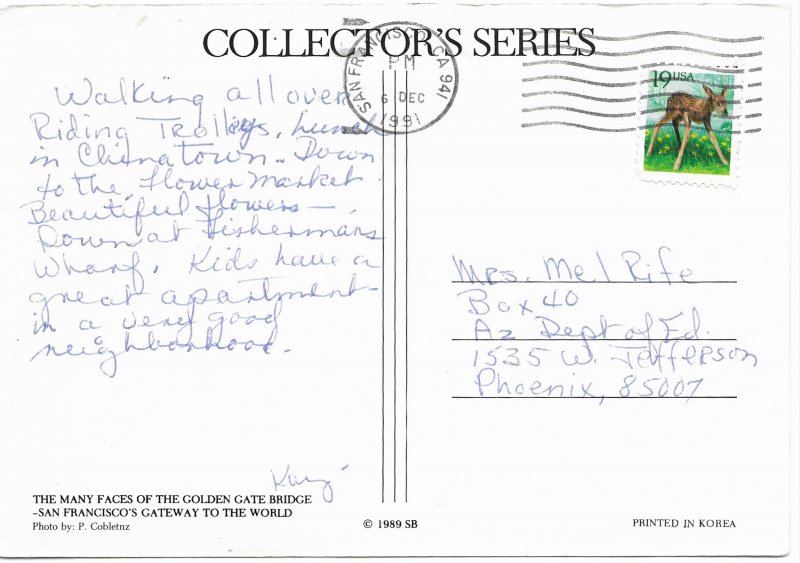 COLLECTOR'S SERIES
SAN FRANCISCO, CA 941
PM
6 DEC
1991
19 USA
Walking all over
Riding Trolleys, Lunch
in Chinatown - Down
to the Flower Market
Beautiful flowers -
Down at Fishermans
Wharf. Kids have a
great apartment -
in a very good
neighborhood.
Kay
Mrs. Mel Rife
Box 40
Az Dept of Ed.
1535 W. Jefferson
Phoenix, 85007
THE MANY FACES OF THE GOLDEN GATE BRIDGE
-SAN FRANCISCO'S GATEWAY TO THE WORLD
Photo by: P. Cobletnz
© 1989 SB
PRINTED IN KOREA